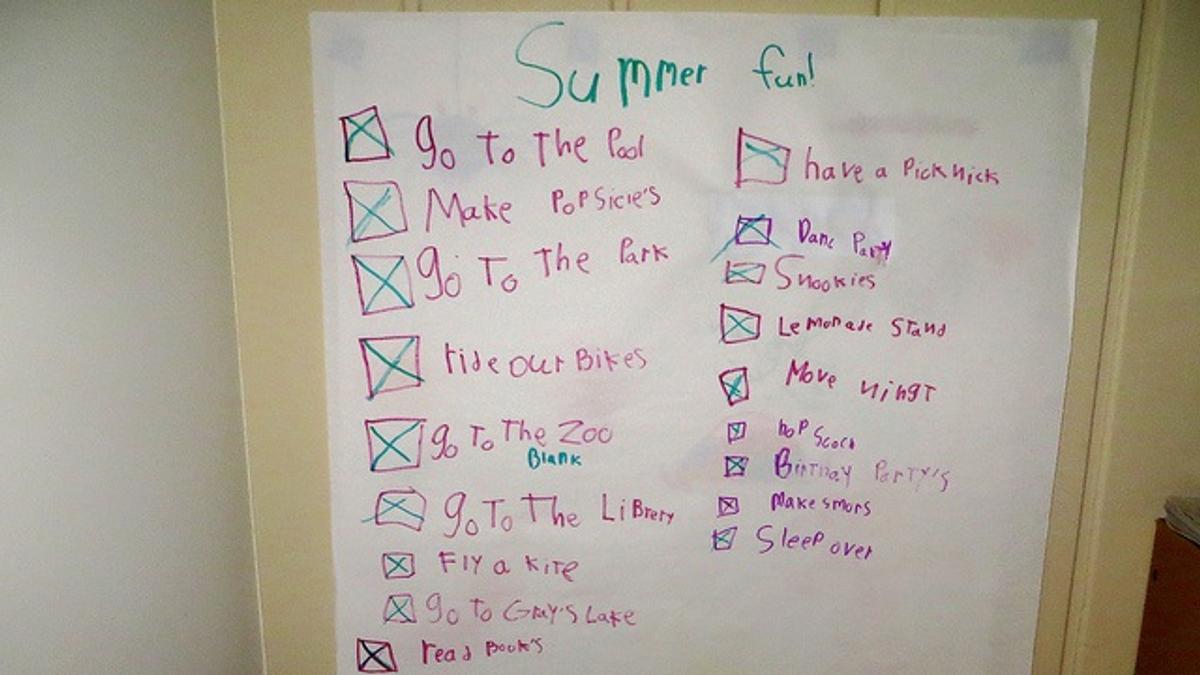 Summer fun!
go To The Pool
Make PoPSicle's
go To The Park
ride our Bikes
go To The Zoo
Blank
go To The Librery
Fly a kite
go to Gray's Lake
read Book's
have a Picknick
Danc Party
Snookies
Lemonade Stand
Move ningt
hop Scoch
Birthday Party's
Make smors
Sleep over